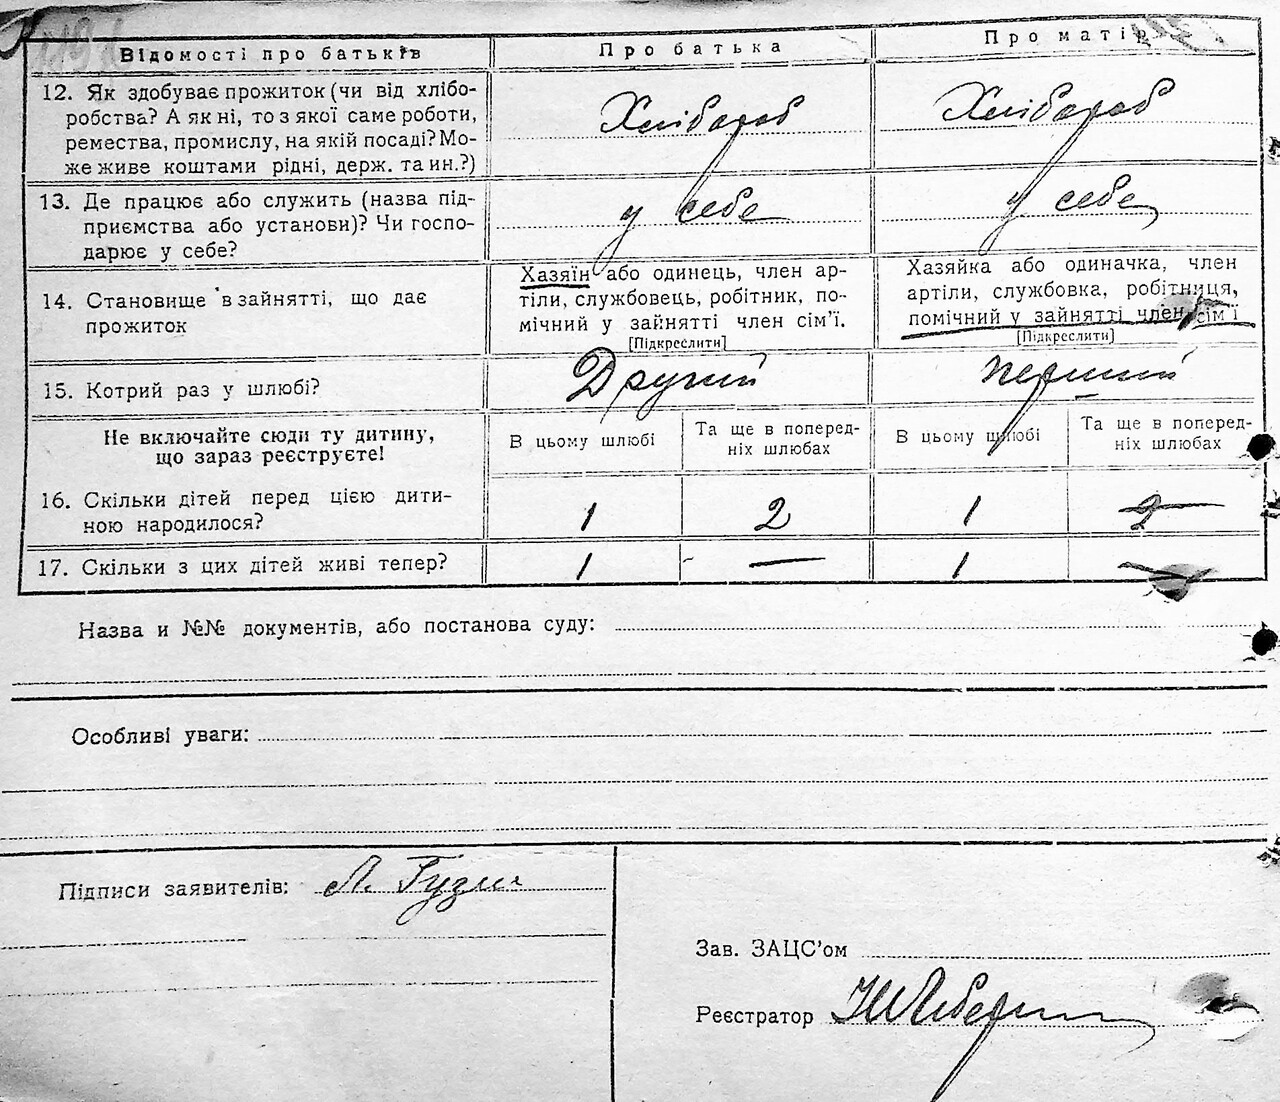 Відомості про батьків
Про батька
Про матір
12. Як здобуває прожиток (чи від хлібо-
робства? А як ні, то з якої саме роботи,
ремества, промислу, на якій посаді? Мо-
же живе коштами рідні, держ. та ин.?)
Хлібороб
Хлібороб
13. Де працює або служить (назва під-
приємства або установи)? Чи госпо-
дарює у себе?
у себе
у себе
14. Становище в зайнятті, що дає
прожиток
Хазяїн або одинець, член ар-
тіли, службовець, робітник, по-
мічний у зайнятті член сім’ї.
[Підкреслити]
Хазяйка або одиначка, член
артіли, службовка, робітниця,
помічний у зайнятті член сім’ї
[Підкреслити]
15. Котрий раз у шлюбі?
Другий
перший
Не включайте сюди ту дитину,
що зараз реєструєте!
В цьому шлюбі
Та ще в поперед-
ніх шлюбах
В цьому шлюбі
Та ще в поперед-
ніх шлюбах
16. Скільки дітей перед цією дити-
ною народилося?
1
2
1
2
17. Скільки з цих дітей живі тепер?
1
—
1
—
Назва и №№ документів, або постанова суду:
Особливі уваги:
Підписи заявителів: Л.
Зав. ЗАЦС’ом
Реєстратор